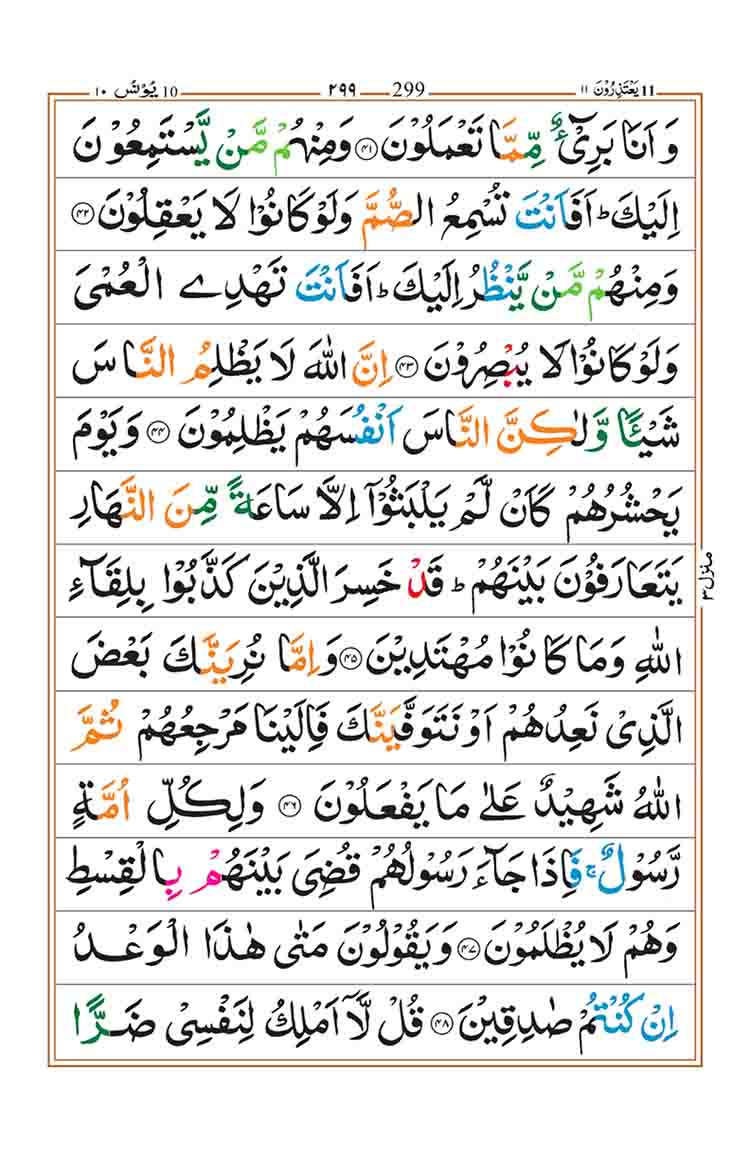 ۱۱ یَعْتَذِرُوْنَ 11 299 ۲۹۹ 10 یُوْنُس ۱۰
وَ اَنَا بَرِیْٓءٌ مِّمَّا تَعْمَلُوْنَ ﴿۴۱﴾ وَمِنْهُمْ مَّنْ یَّسْتَمِعُوْنَ
اِلَیْكَ ؕ اَفَاَنْتَ تُسْمِعُ الصُّمَّ وَلَوْ كَانُوْا لَا یَعْقِلُوْنَ ﴿۴۲﴾
وَمِنْهُمْ مَّنْ یَّنْظُرُ اِلَیْكَ ؕ اَفَاَنْتَ تَهْدِے الْعُمْیَ
وَلَوْ كَانُوْا لَا یُبْصِرُوْنَ ﴿۴۳﴾ اِنَّ اللّٰهَ لَا یَظْلِمُ النَّاسَ
شَیْئًا وَّلٰكِنَّ النَّاسَ اَنْفُسَهُمْ یَظْلِمُوْنَ ﴿۴۴﴾ وَیَوْمَ
یَحْشُرُهُمْ كَاَنْ لَّمْ یَلْبَثُوْۤا اِلَّا سَاعَةً مِّنَ النَّهَارِ
یَتَعَارَفُوْنَ بَیْنَهُمْ ؕ قَدْ خَسِرَ الَّذِیْنَ كَذَّبُوْا بِلِقَآءِ
اللّٰهِ وَمَا كَانُوْا مُهْتَدِیْنَ ﴿۴۵﴾ وَاِمَّا نُرِیَنَّكَ بَعْضَ
الَّذِیْ نَعِدُهُمْ اَوْ نَتَوَفَّیَنَّكَ فَاِلَیْنَا مَرْجِعُهُمْ ثُمَّ
اللّٰهُ شَهِیْدٌ عَلٰی مَا یَفْعَلُوْنَ ﴿۴۶﴾ وَلِكُلِّ اُمَّةٍ
رَّسُوْلٌ ۚ فَاِذَا جَآءَ رَسُوْلُهُمْ قُضِیَ بَیْنَهُمْ بِالْقِسْطِ
وَهُمْ لَا یُظْلَمُوْنَ ﴿۴۷﴾ وَیَقُوْلُوْنَ مَتٰی هٰذَا الْوَعْدُ
اِنْ كُنْتُمْ صٰدِقِیْنَ ﴿۴۸﴾ قُلْ لَّاۤ اَمْلِكُ لِنَفْسِیْ ضَرًّا
منزل ۳